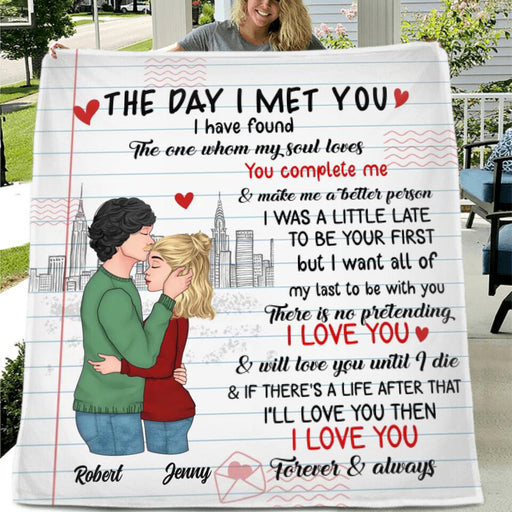 THE DAY I MET YOU
I have found
The one whom my soul loves
You complete me
& make me a better person
I WAS A LITTLE LATE
TO BE YOUR FIRST
but I want all of
my last to be with you
There is no pretending
I LOVE YOU
& will love you until I die
& IF THERE'S A LIFE AFTER THAT
I'LL LOVE YOU THEN
I LOVE YOU
Forever & always
Robert Jenny